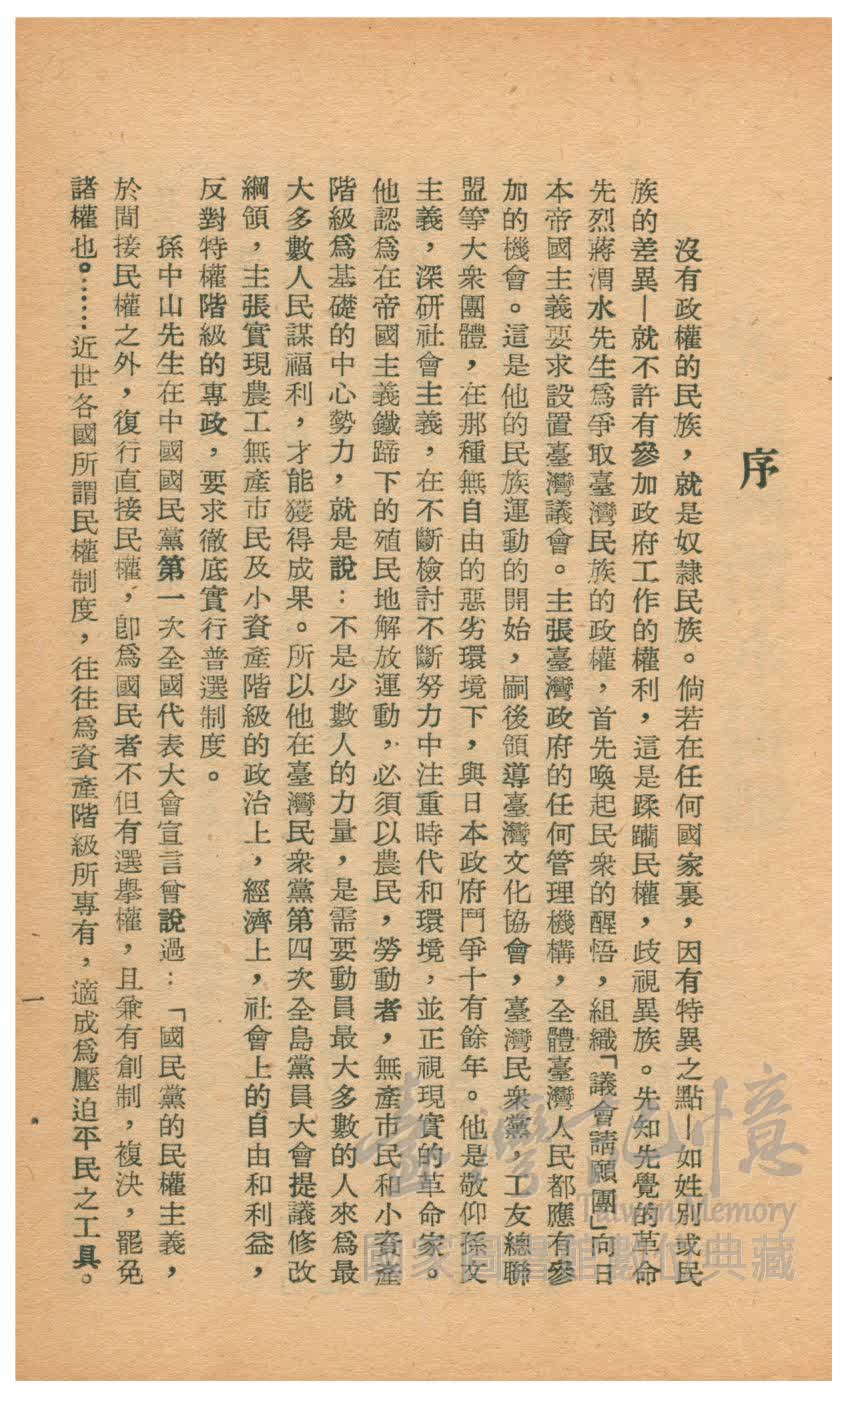 序
沒有政權的民族，就是奴隸民族。倘若在任何國家裏，因有特異之點—如姓別或民
族的差異—就不許有參加政府工作的權利，這是蹂躪民權，歧視異族。先知先覺的革命
先烈蔣渭水先生爲爭取臺灣民族的政權，首先喚起民衆的醒悟，組織「議會請願團」向日
本帝國主義要求設置臺灣議會。主張臺灣政府的任何管理機構，全體臺灣人民都應有參
加的機會。這是他的民族運動的開始，嗣後領導臺灣文化協會，臺灣民衆黨，工友總聯
盟等大衆團體，在那種無自由的惡劣環境下，與日本政府鬥爭十有餘年。他是敬仰孫文
主義，深研社會主義，在不斷檢討不斷努力中注重時代和環境，並正視現實的革命家。
他認爲在帝國主義鐵蹄下的殖民地解放運動，必須以農民，勞動者，無產市民和小資產
階級爲基礎的中心勢力，就是說：不是少數人的力量，是需要動員最大多數的人來爲最
大多數人民謀福利，才能獲得成果。所以他在臺灣民衆黨第四次全島黨員大會提議修改
綱領，主張實現農工無產市民及小資產階級的政治上，經濟上，社會上的自由和利益，
反對特權階級的專政，要求徹底實行普選制度。
孫中山先生在中國國民黨第一次全國代表大會宣言曾說過：「國民黨的民權主義，
於間接民權之外，復行直接民權，卽爲國民者不但有選舉權，且兼有創制，複決，罷免
諸權也。……近世各國所謂民權制度，往往爲資產階級所專有，適成爲壓迫平民之工具。
一
臺灣記憶
Taiwan Memory
國家圖書館數位典藏